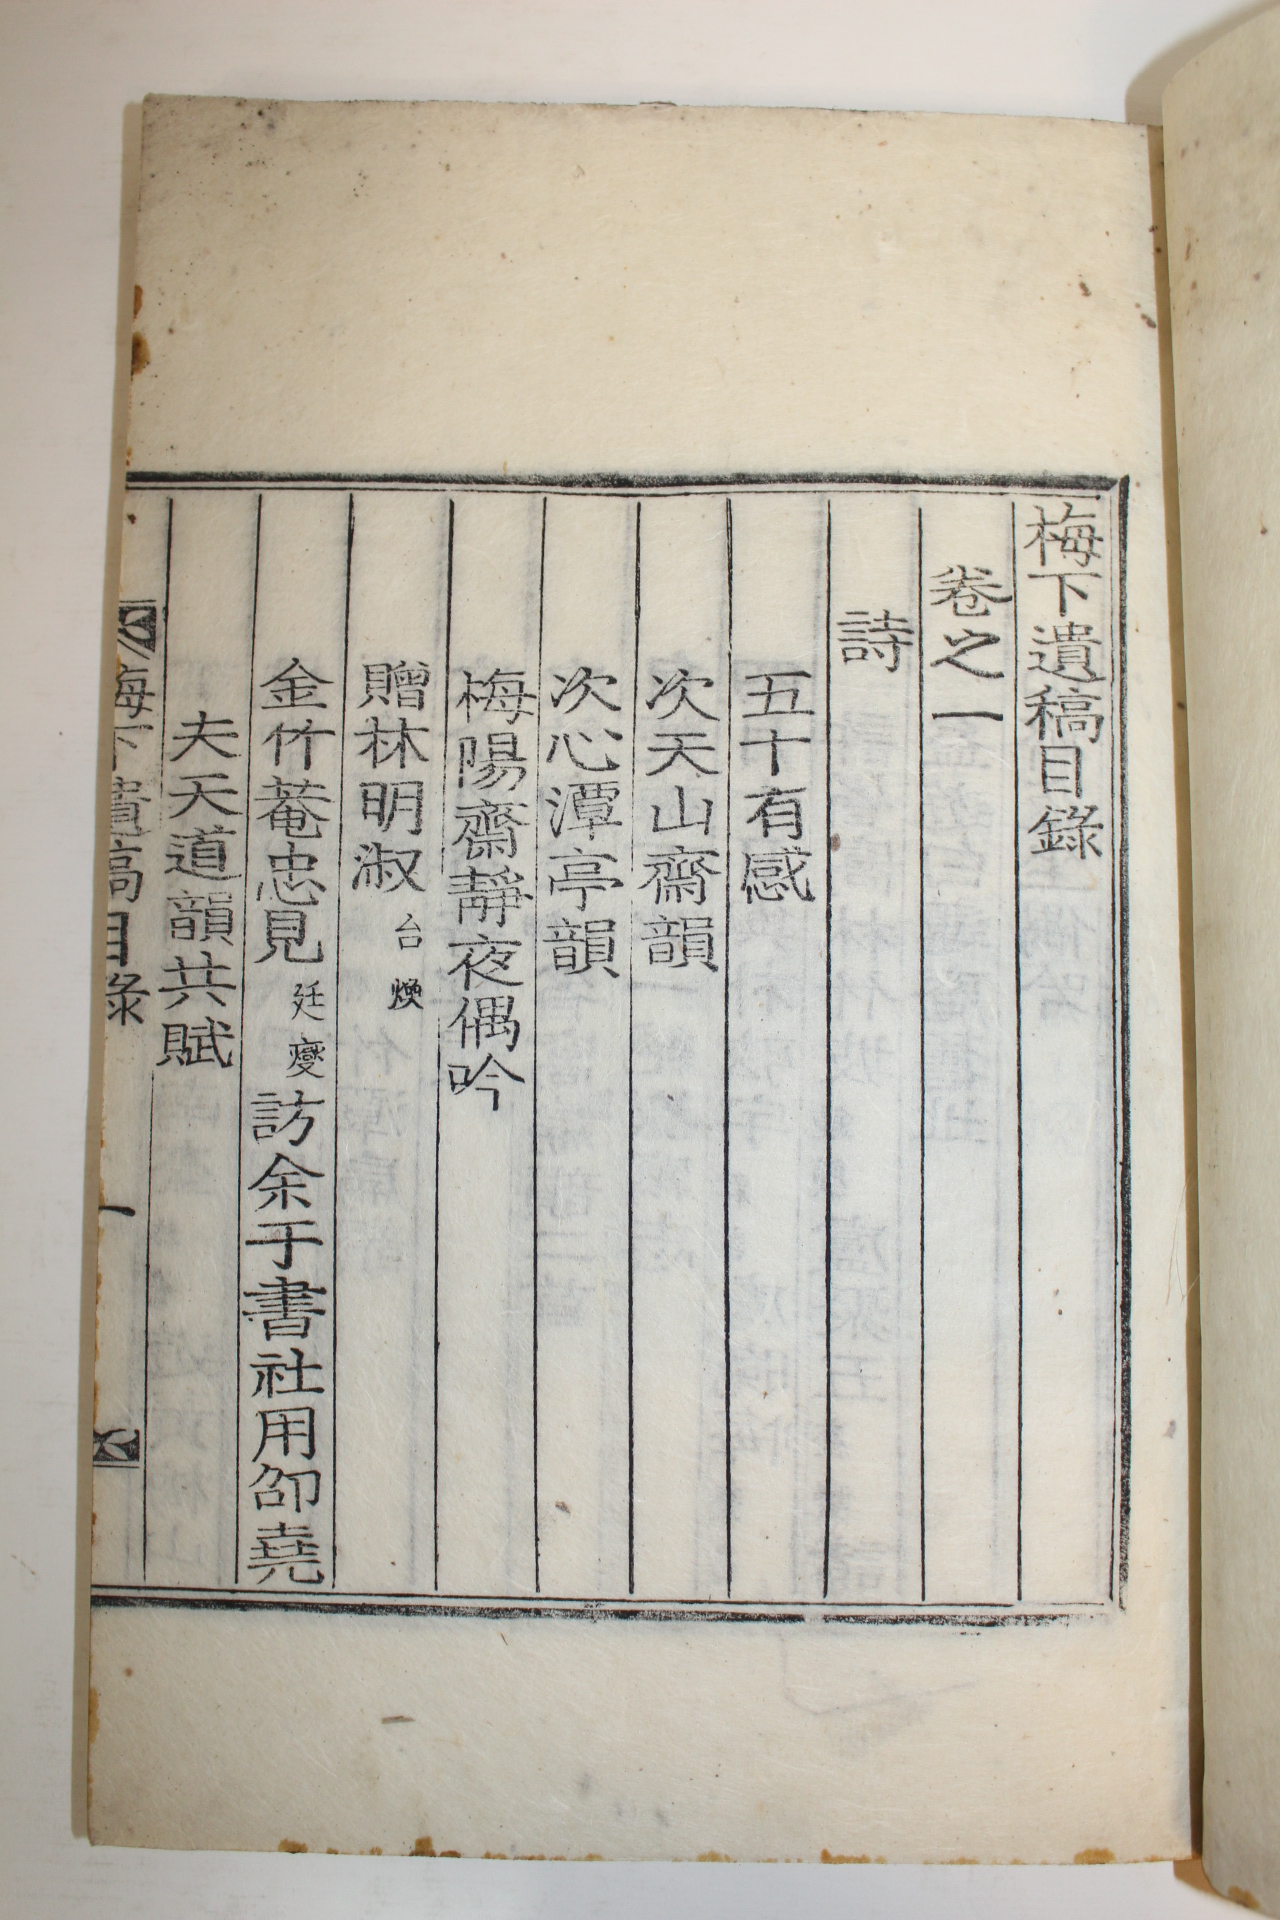 梅下遺稿目錄
卷之一
詩
五十有感
次天山齋韻
次心潭亭韻
梅陽齋靜夜偶吟
贈林明淑台煥
金竹菴忠見廷燮訪余于書社用邵堯
夫天道韻共賦
梅下遺稿目錄 一